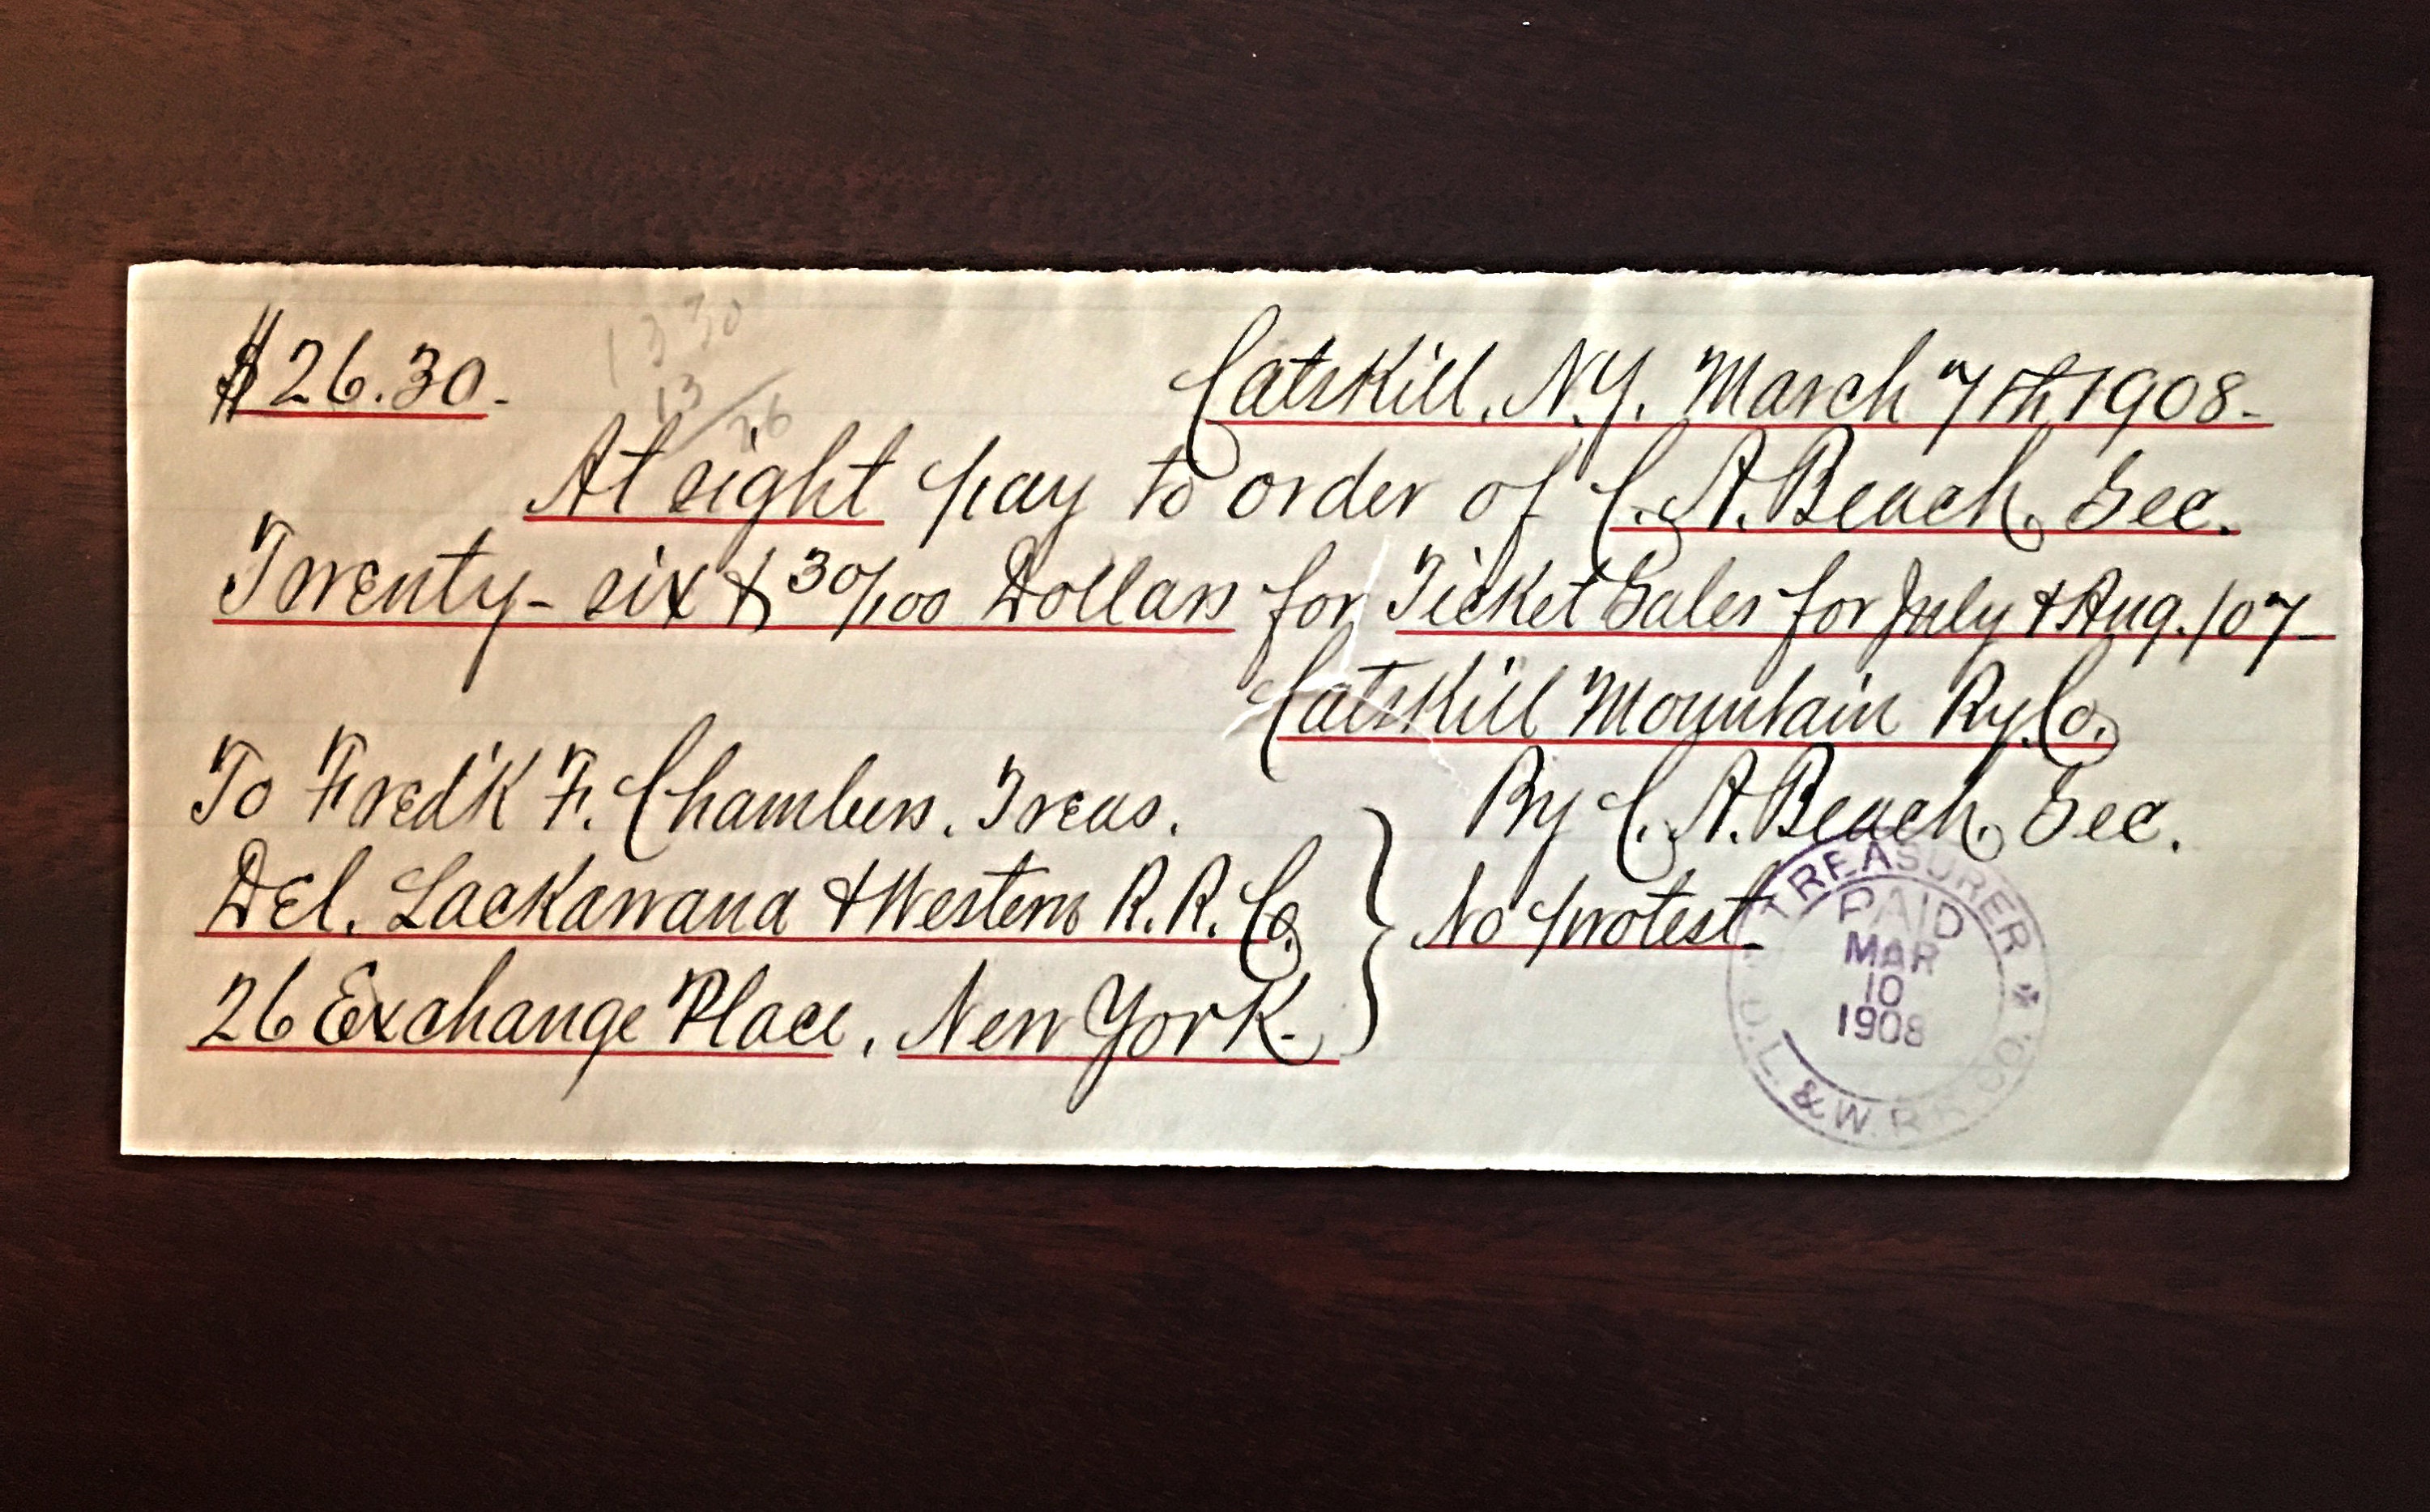 $26.30.-
13 30
13/26
Catskill, N.Y. March 7th 1908-
At sight pay to order of C. A. Beach, Sec.
Twenty-six & 30/100 Dollars for Ticket Sales for July & Aug./07-
Catskill Mountain Ry. Co.
By C. A. Beach, Sec.
To Fred'k F. Chambers, Treas.
Del. Lackawana & Western R.R. Co.
26 Exchange Place, New York.
No protest-
TREASURER
PAID
MAR
10
1908
D. L. & W. R. R. CO.